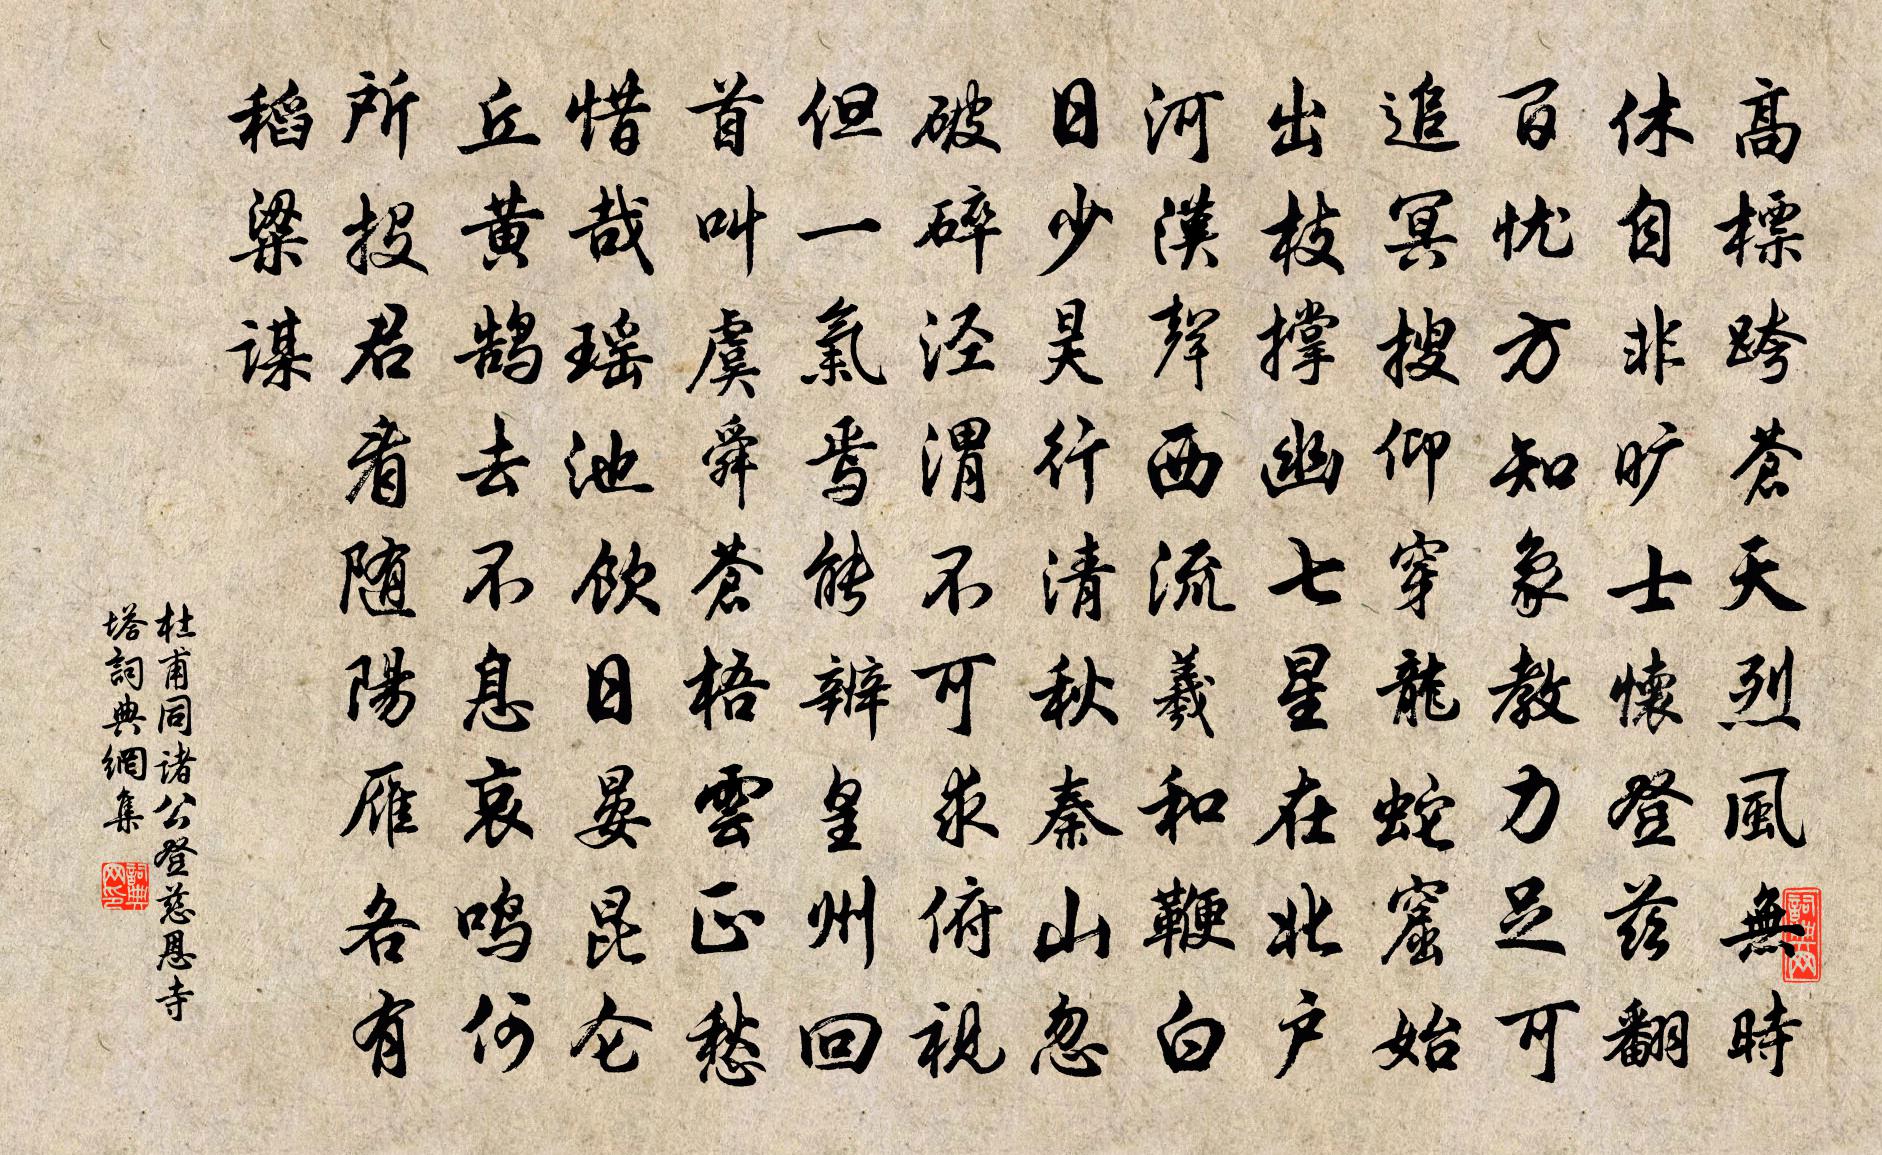 高標跨蒼天烈風無時
休自非旷士懷登兹翻
百忧方知象教力足可
追冥搜仰穿龍蛇窟始
出枝撑幽七星在北户
河漢聲西流羲和鞭白
日少昊行清秋秦山忽
破碎泾渭不可求俯視
但一氣焉能辨皇州回
首叫虞舜蒼梧雲正愁
惜哉瑶池飲日晏昆仑
丘黄鹄去不息哀鸣何
所投君看随陽雁各有
稻粱谋
杜甫同诸公登慈恩寺
塔詞典網集
詞典网
詞典网印